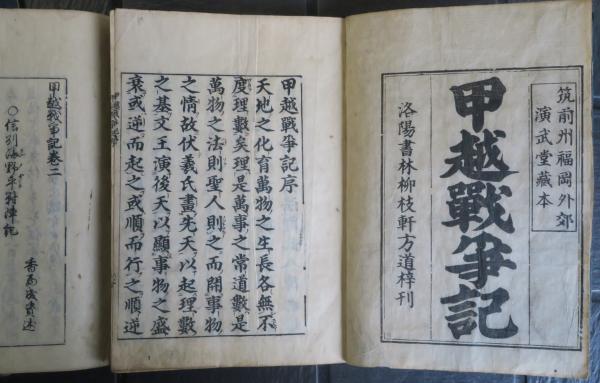 筑前州福岡外郊
演武堂藏本
甲越戰爭記
洛陽書林柳枝軒方道梓刊
甲越戰爭記序
天地之化育萬物之生長各無不
度理數矣理是萬事之常道數是
萬物之法則聖人則之而開事物
之情故伏羲氏畫先天以起理數
之基文王演後天以顯事物之盛
衰或逆而起之或順而行之順逆
甲越戰爭記卷二